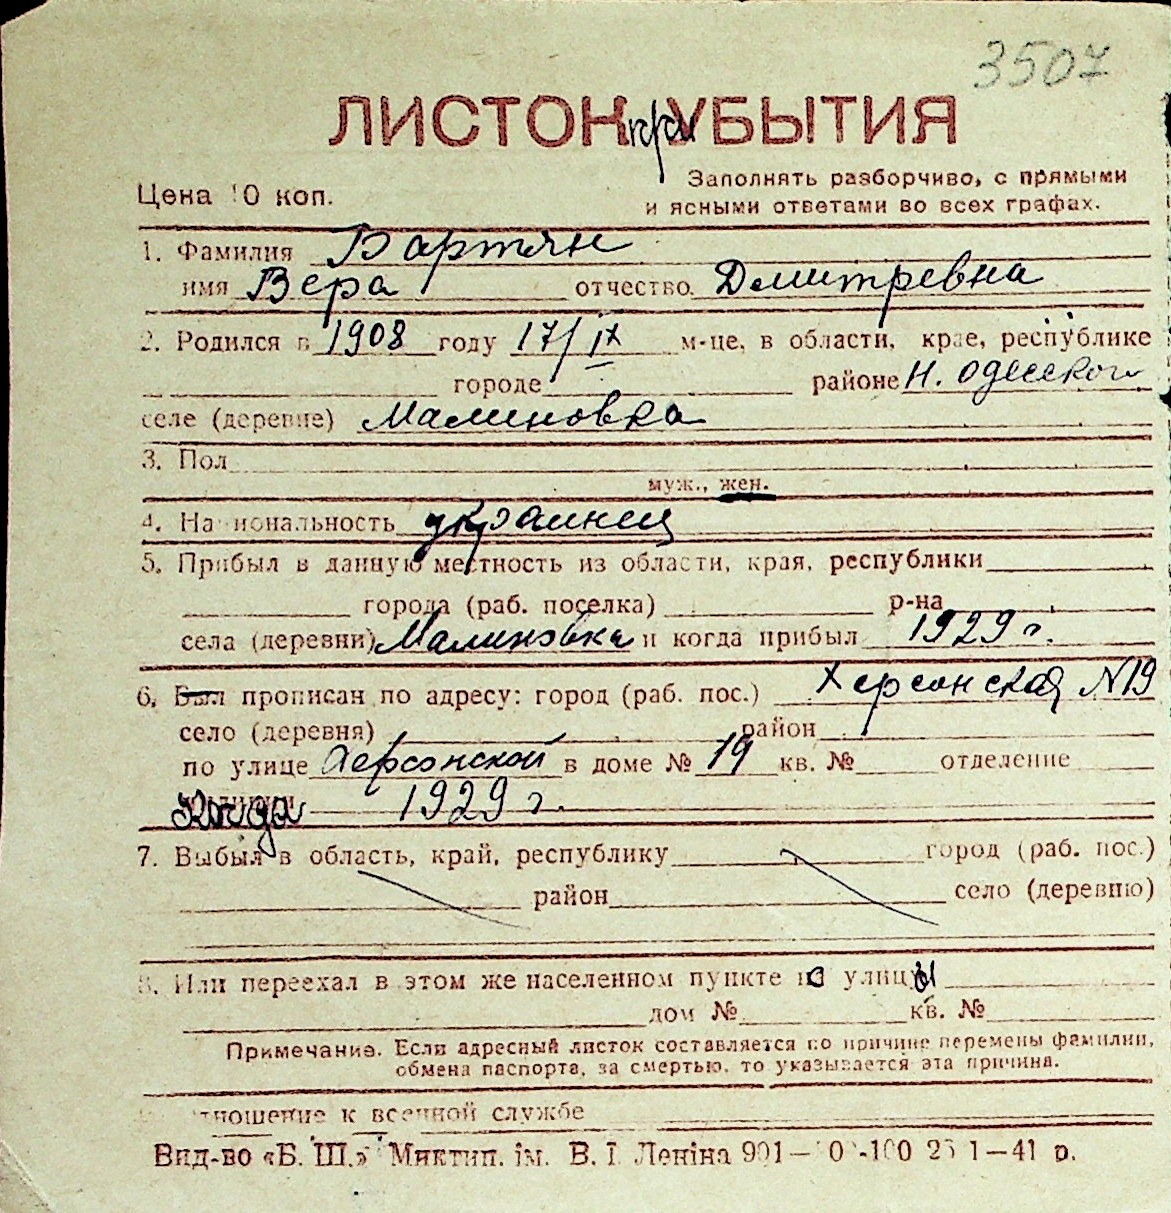 3507
ЛИСТОК при УБЫТИЯ
Цена 10 коп.
Заполнять разборчиво, с прямыми
и ясными ответами во всех графах.
1. Фамилия Бартян
имя Вера отчество Дмитревна
2. Родился в 1908 году 17/IX м-це, в области, крае, республике
городе районе Н. Одесской
селе (деревне) Малиновка
3. Пол
муж., жен.
4. Национальность украинец
5. Прибыл в данную местность из области, края, республики
города (раб. поселка) р-на
села (деревни) Малиновка и когда прибыл 1929 г.
6. Был прописан по адресу: город (раб. пос.) Херсонская N19
село (деревня) район
по улице Херсонской в доме № 19 кв. № отделение
Когда 1929 г.
7. Выбыл в область, край, республику город (раб. пос.)
район село (деревню)
8. Или переехал в этом же населенном пункте с улицы
дом № кв. №
Примечание. Если адресный листок составляется по причине перемены фамилии,
обмена паспорта, за смертью, то указывается эта причина.
отношение к военной службе
Вид-во «Б. Ш.» Миктип. ім. В. І. Леніна 901— 1—41 р.